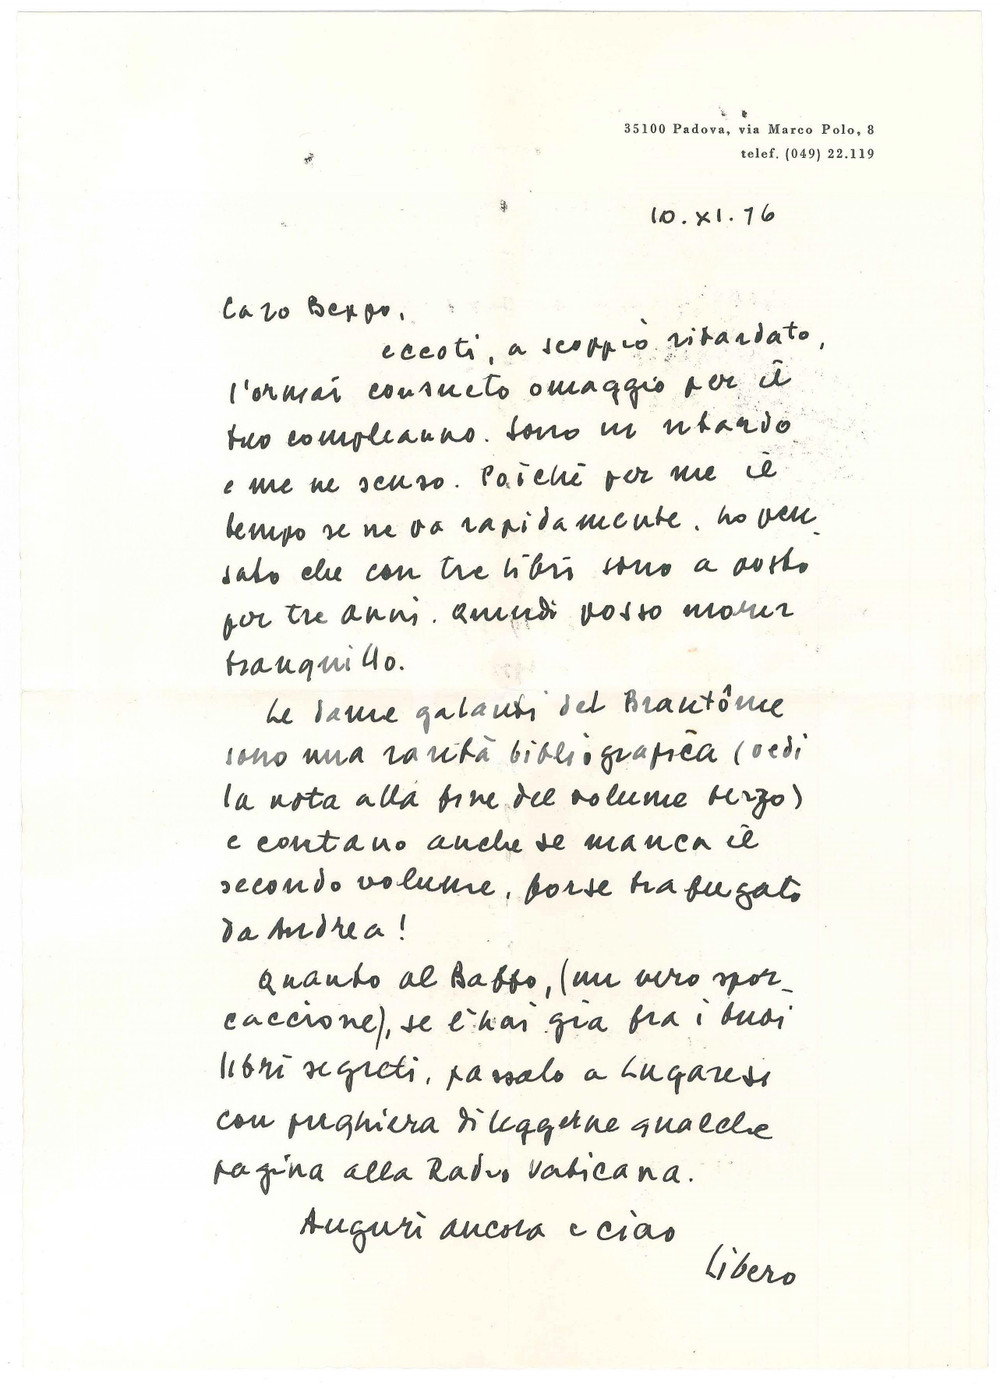 35100 Padova, via Marco Polo, 8
telef. (049) 22.119
10.XI.76
Caro Beppo,
eccoti, a scoppio ritardato,
l'ormai consueto omaggio per il
tuo compleanno. Sono in ritardo
e me ne scuso. Poiché per me il
tempo se ne va rapidamente, ho pen_
sato che con tre libri sono a posto
per tre anni. Quindi posso morir
tranquillo.
Le dame galanti del Brantôme
sono una rarità bibliografica (vedi
la nota alla fine del volume terzo)
e contano anche se manca il
secondo volume, forse trafugato
da Andrea!
Quanto al Baffo, (un vero spor_
caccione), se l'hai già fra i tuoi
libri segreti, passalo a Lugaresi
con preghiera di leggerne qualche
pagina alla Radio Vaticana.
Auguri ancora e ciao
Libero